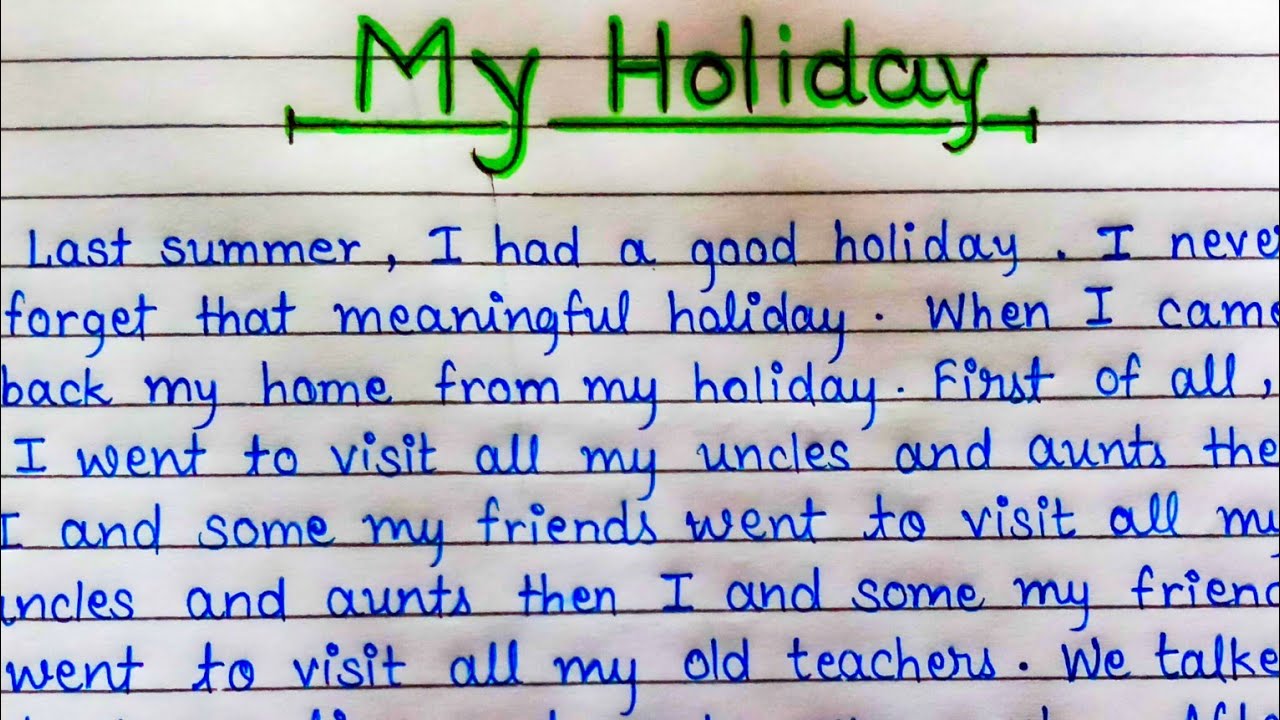 My Holiday
Last summer, I had a good holiday. I never
forget that meaningful holiday. When I came
back my home from my holiday. First of all,
I went to visit all my uncles and aunts the
I and some my friends went to visit all my
uncles and aunts then I and some my friend
went to visit all my old teachers. We talke